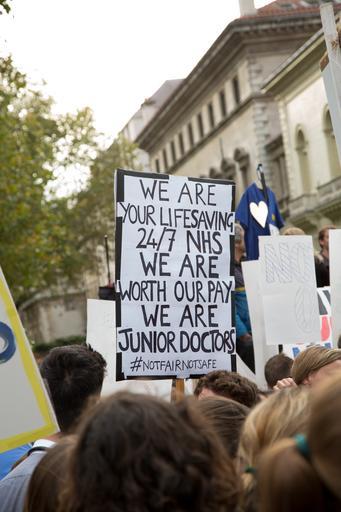 WE ARE
YOUR LIFESAVING
24/7 NHS
WE ARE
WORTH OUR PAY
WE ARE
JUNIOR DOCTORS
#NOTFAIRNOTSAFE
NO